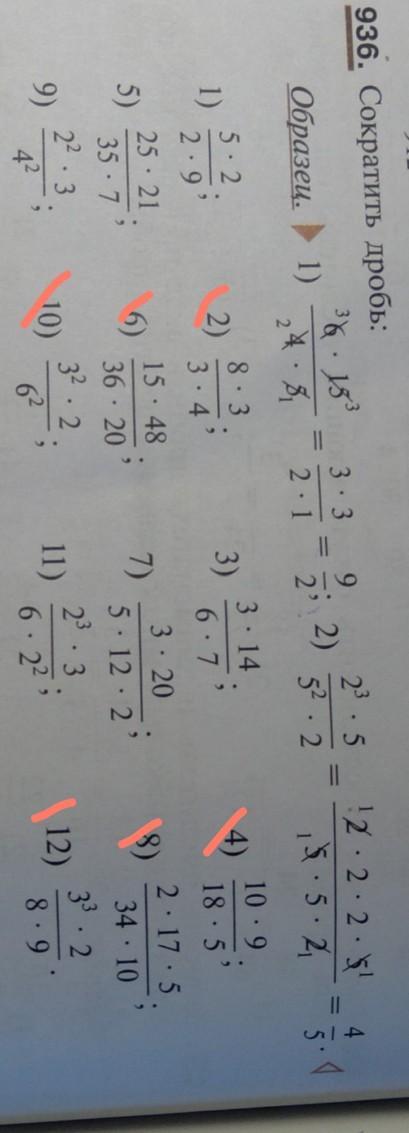 936. Сократить дробь:
Образец. 1) (6 · 15)/(4 · 5) = (3 · 3)/(2 · 1) = 9/2; 2) (2³ · 5)/(5² · 2) = (2 · 2 · 2 · 5)/(5 · 5 · 2) = 4/5.
1) (5 · 2)/(2 · 9); 2) (8 · 3)/(3 · 4); 3) (3 · 14)/(6 · 7); 4) (10 · 9)/(18 · 5);
5) (25 · 21)/(35 · 7); 6) (15 · 48)/(36 · 20); 7) (3 · 20)/(5 · 12 · 2); 8) (2 · 17 · 5)/(34 · 10);
9) (2² · 3)/4²; 10) (3² · 2)/6²; 11) (2³ · 3)/(6 · 2²); 12) (3³ · 2)/(8 · 9).